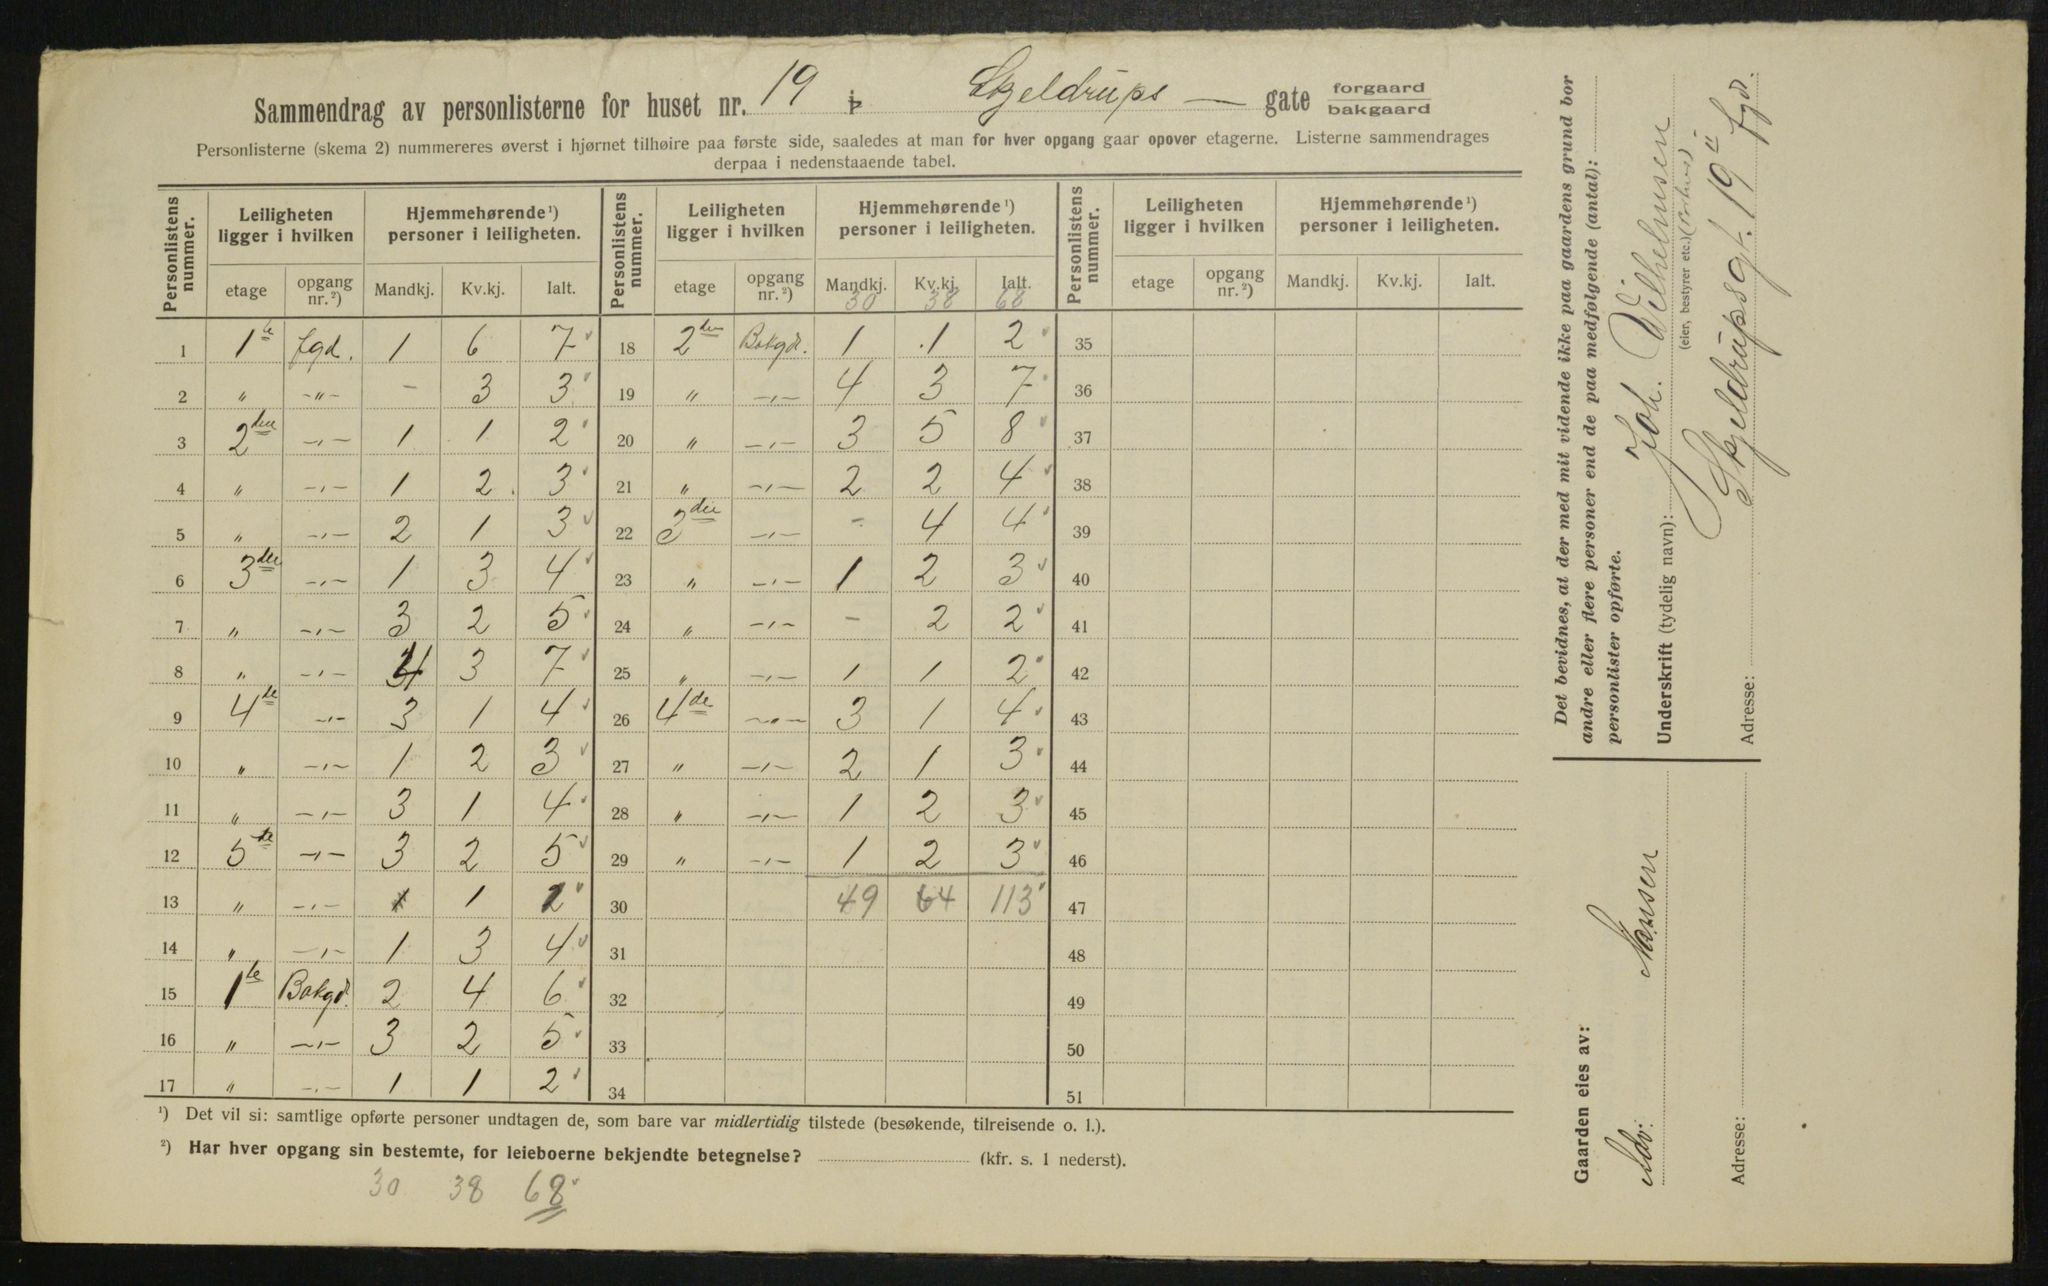 Sammendrag av personlisterne for huset nr. 19 i Skjeldrups — gate forgaard bakgaard
Personlisterne (skema 2) nummereres øverst i hjørnet tilhøire paa første side, saaledes at man for hver opgang gaar opover etagerne. Listerne sammendrages
derpaa i nedenstaaende tabel.
Personlistens nummer. Leiligheten ligger i hvilken Hjemmehørende ¹) personer i leiligheten. Personlistens nummer. Leiligheten ligger i hvilken Hjemmehørende ¹) personer i leiligheten. Personlistens nummer. Leiligheten ligger i hvilken Hjemmehørende ¹) personer i leiligheten.
etage opgang nr. ²) Mandkj. Kv.kj. Ialt. etage opgang nr. ²) Mandkj. Kv.kj. Ialt. etage opgang nr. ²) Mandkj. Kv.kj. Ialt.
30 38 68
1 1te fgd. 1 6 7 18 2den Bakgd. 1 1 2 35
2 " —"— - 3 3 19 " —"— 4 3 7 36
3 2den —"— 1 1 2 20 " —"— 3 5 8 37
4 " —"— 1 2 3 21 " —"— 2 2 4 38
5 " —"— 2 1 3 22 3die —"— - 4 4 39
6 3die —"— 1 3 4 23 " —"— 1 2 3 40
7 " —"— 3 2 5 24 " —"— - 2 2 41
8 " —"— 4 3 7 25 " —"— 1 1 2 42
9 4de —"— 3 1 4 26 4de —"— 3 1 4 43
10 " —"— 1 2 3 27 " —"— 2 1 3 44
11 " —"— 3 1 4 28 " —"— 1 2 3 45
12 5te —"— 3 2 5 29 " —"— 1 2 3 46
13 " —"— 1 1 2 30 49 64 113 47
14 " —"— 1 3 4 31 48
15 1te Bakgd. 2 4 6 32 49
16 " —"— 3 2 5 33 50
17 " —"— 1 1 2 34 51
¹) Det vil si: samtlige opførte personer undtagen de, som bare var midlertidig tilstede (besøkende, tilreisende o. l.).
²) Har hver opgang sin bestemte, for leieboerne bekjendte betegnelse? (kfr. s. 1 nederst).
30 38 68
Det bevidnes, at der med mit vidende ikke paa gaardens grund bor
andre eller flere personer end de paa medfølgende (antal):
personlister opførte.
Underskrift (tydelig navn): Joh. Vilhelmsen
(eier, bestyrer etc.)
Adresse: Skjeldrupsgt. 19 II fgd.
Gaarden eies av:
Adv. Hansen
Adresse: